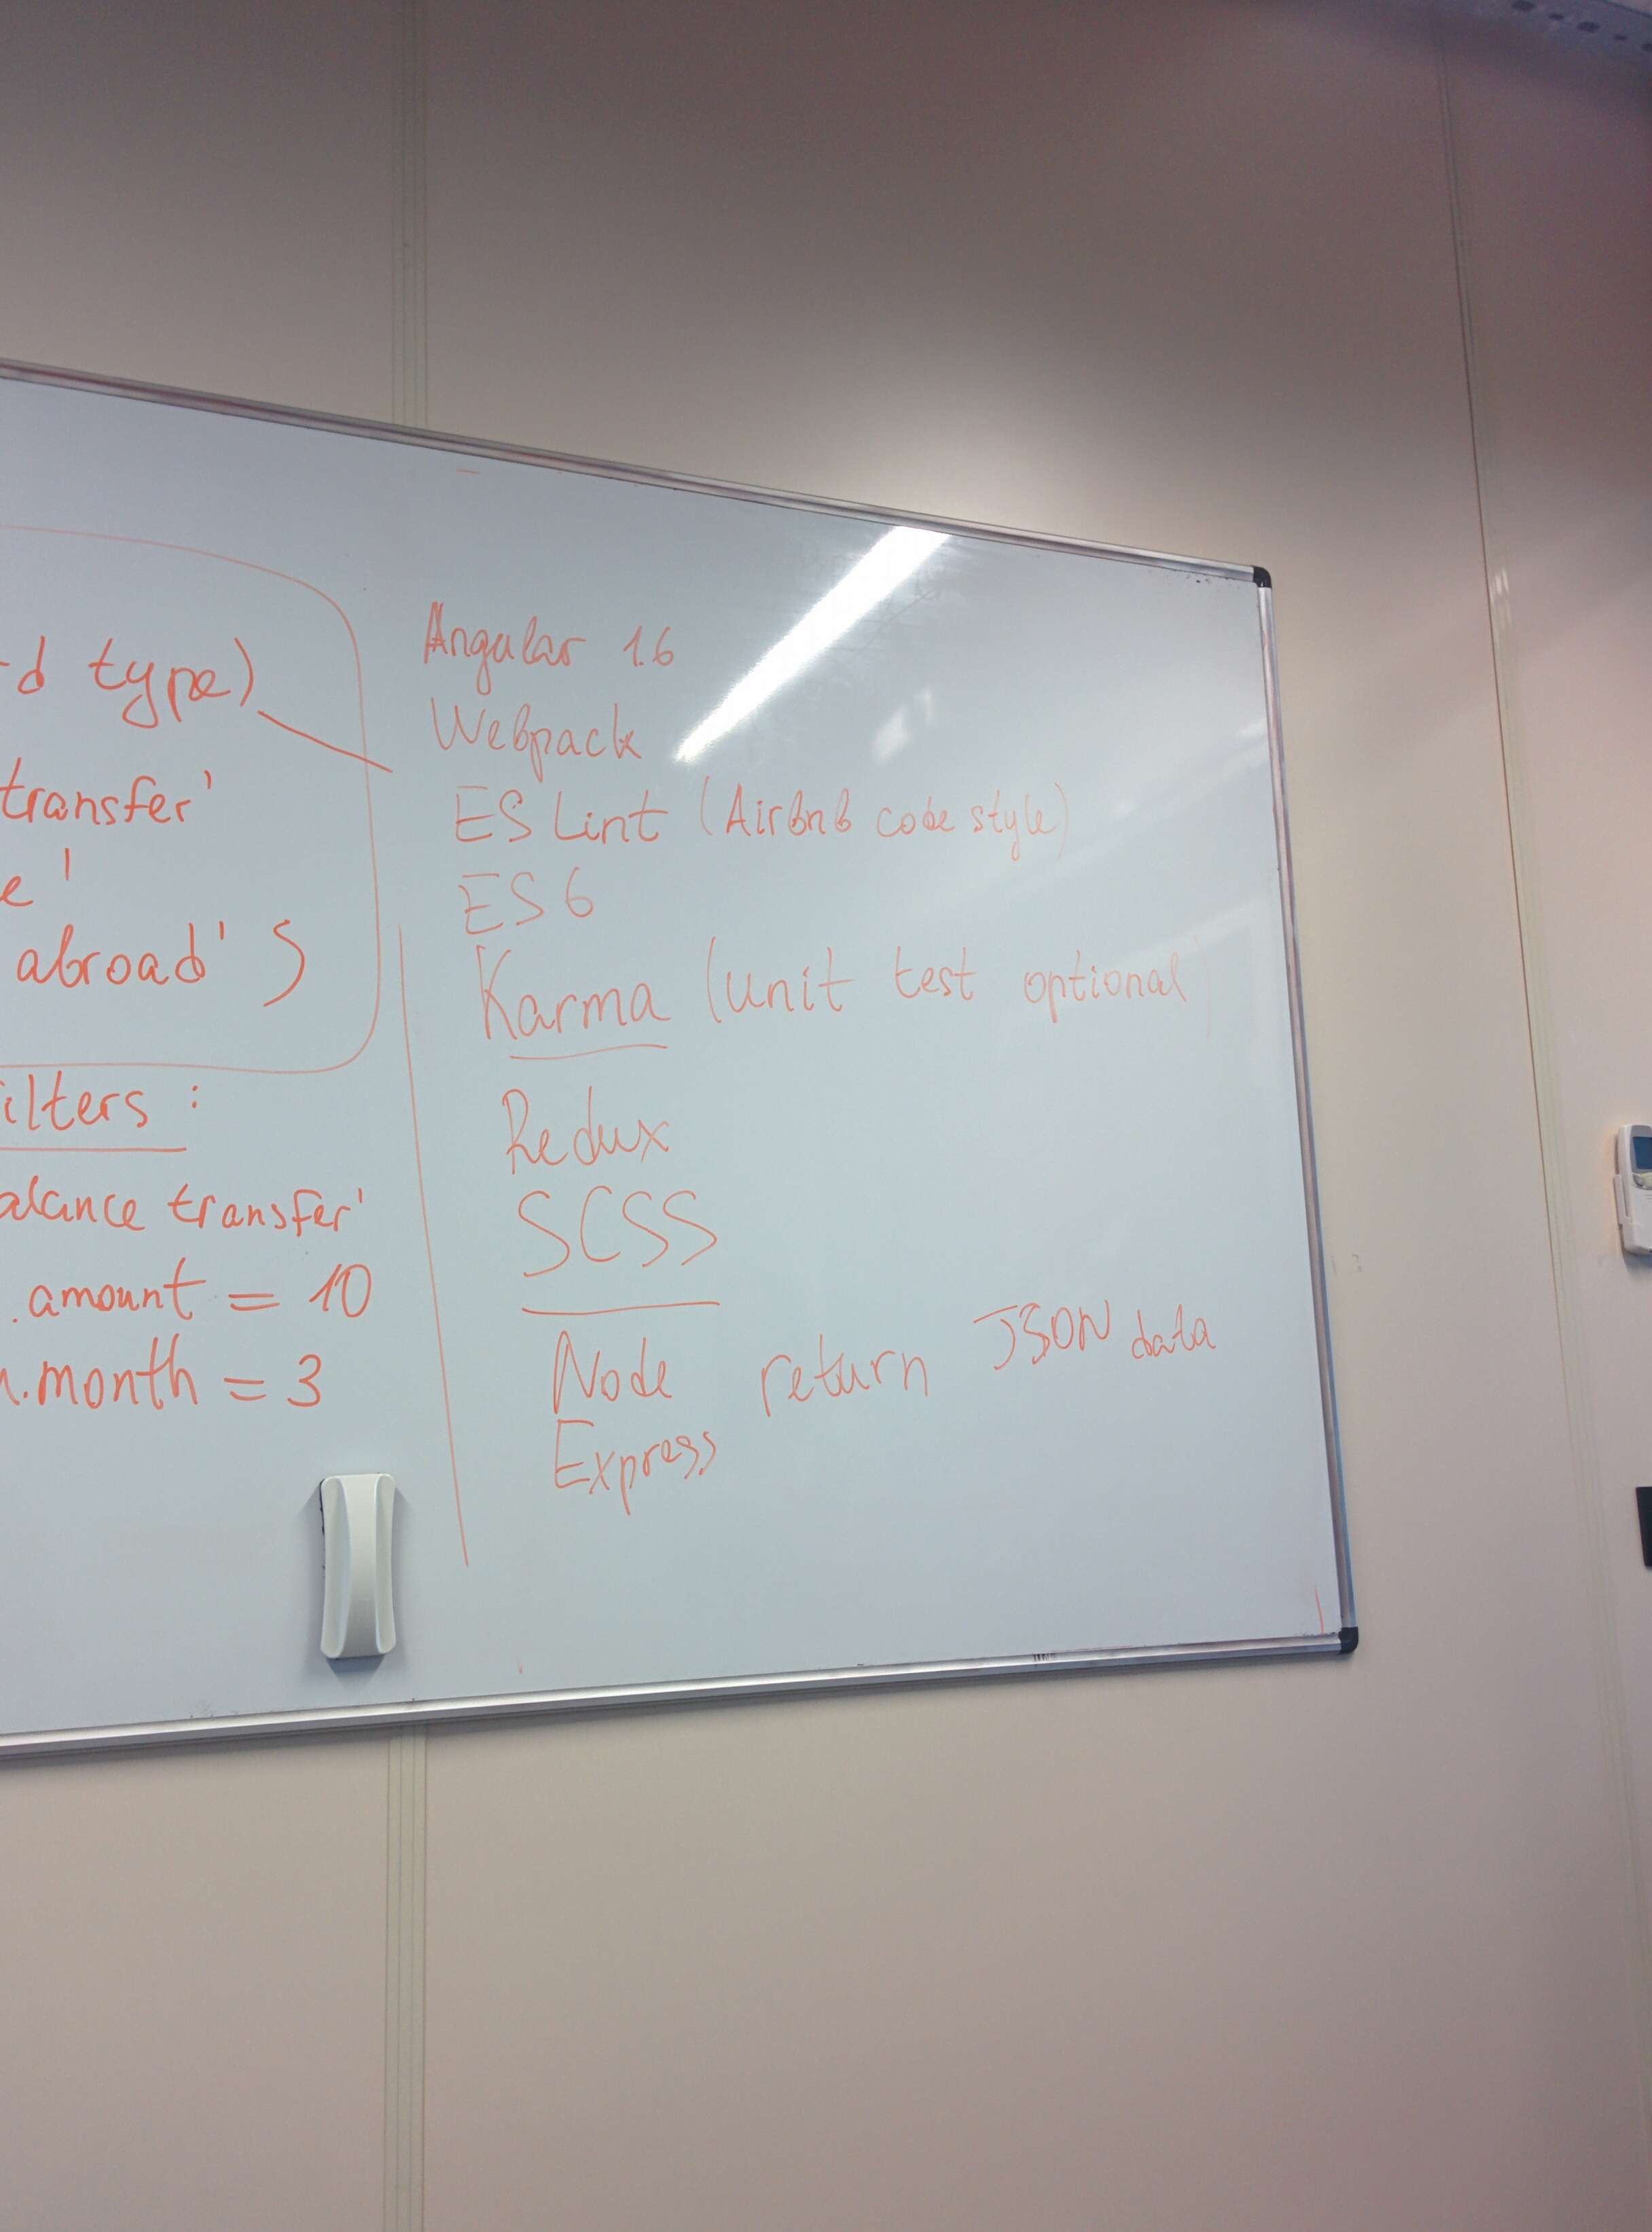 -d type)
transfer'
e'
abroad' )
ilters :
alance transfer'
.amount = 10
.month = 3
Angular 1.6
Webpack
ES Lint (Airbnb code style)
ES 6
Karma (unit test optional)
Redux
SCSS
Node return JSON data
Express